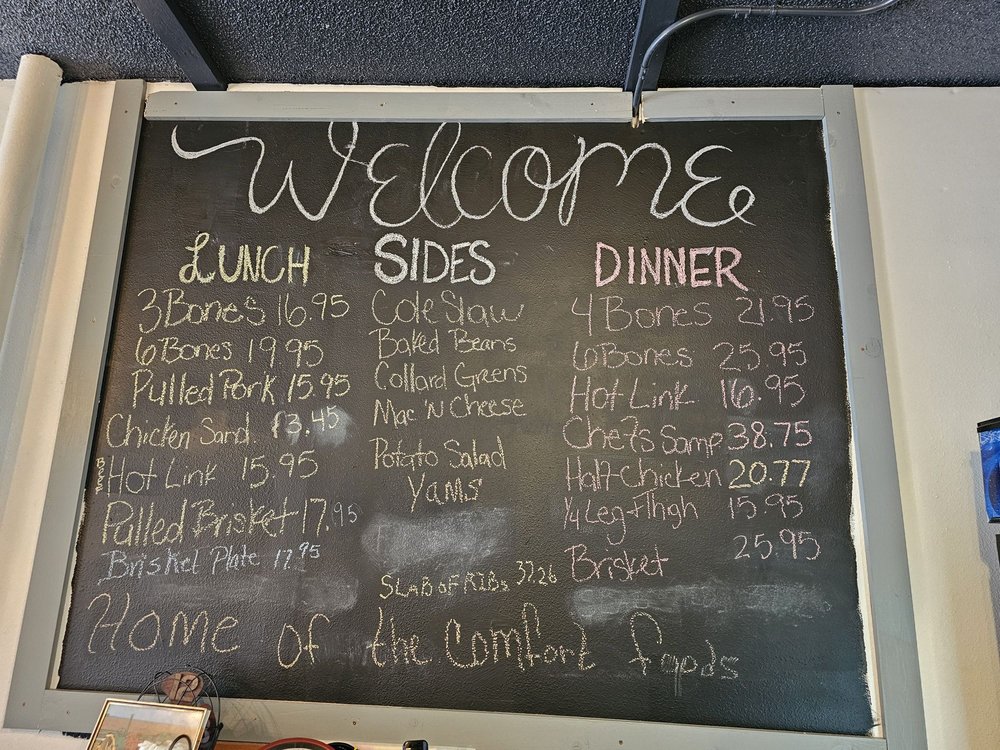 Welcome
LUNCH
3 Bones 16.95
6 Bones 19.95
Pulled Pork 15.95
Chicken Sand. 13.45
Hot Link 15.95
Pulled Brisket 17.95
Brisket Plate 17.95
SIDES
Cole Slaw
Baked Beans
Collard Greens
Mac 'N Cheese
Potato Salad
YAMS
SLAB OF RIBs 37.26
DINNER
4 Bones 21.95
6 Bones 25.95
Hot Link 16.95
Chefs Samp 38.75
Half-Chicken 20.77
1/4 Leg+Thigh 15.95
Brisket 25.95
Home of the Comfort foods